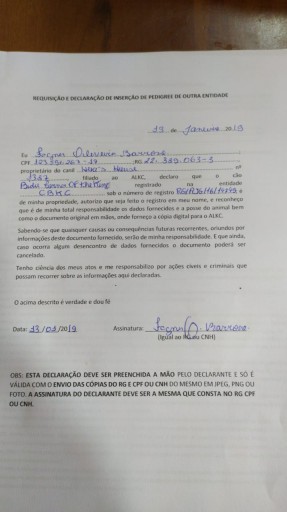 REQUISIÇÃO E DECLARAÇÃO DE INSERÇÃO DE PEDIGREE DE OUTRA ENTIDADE
13 de Janeiro 2019
Eu Barrone
CPF RG 22.389.063-3
proprietário do canil House nº
1387 filiado ao ALKC, declaro que o cão
registrado na entidade
CBKC sob o número de registro e
de minha propriedade, autorizo que seja feito o registro em meu nome, e reconheço
que é de minha total responsabilidade os dados fornecidos e a posse do animal bem
como o documento original em mãos, onde forneço a cópia digital para o ALKC.
Sabendo-se que quaisquer causas ou consequências futuras recorrentes, oriundos por
informações deste documento fornecido, serão de minha responsabilidade. E que ainda,
caso ocorra algum desencontro de dados fornecidos o documento poderá ser
cancelado.
Tenho ciência dos meus atos e me responsabilizo por ações cíveis e criminais que
possam recorrer sobre as informações aqui declaradas.
O acima descrito é verdade e dou fé
Data: 13/01/2019 Assinatura: Barrone
(Igual ao RG ou CNH)
OBS: ESTA DECLARAÇÃO DEVE SER PREENCHIDA A MÃO PELO DECLARANTE E SÓ É
VÁLIDA COM O ENVIO DAS CÓPIAS DO RG E CPF OU CNH DO MESMO EM JPEG, PNG OU
FOTO. A ASSINATURA DO DECLARANTE DEVE SER A MESMA QUE CONSTA NO RG CPF
OU CNH.